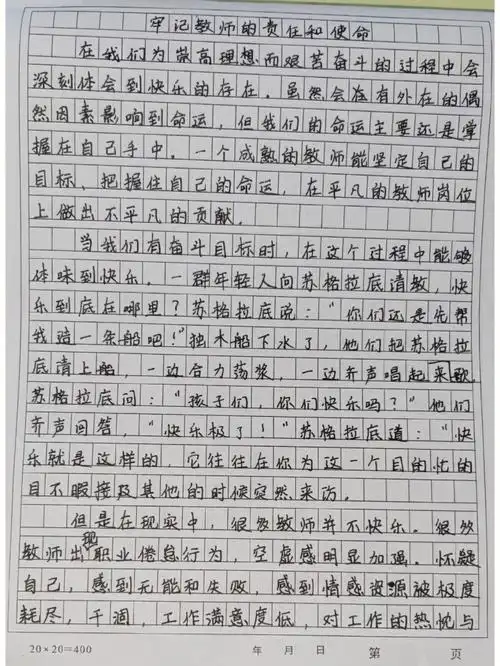 牢记教师的责任和使命
在我们为崇高理想而艰苦奋斗的过程中会
深刻体会到快乐的存在。虽然会准有外在的偶
然因素影响到命运，但我们的命运主要还是掌
握在自己手中。一个成熟的教师能坚定自己的
目标、把握住自己的命运，在平凡的教师岗位
上做出不平凡的贡献。
当我们有奋斗目标时，在这个过程中能够
体味到快乐。一群年轻人问苏格拉底请教，快
乐到底在哪里？苏格拉底说："你们还是先帮
我赔一条船吧！"独木船下水了，他们把苏格拉
底请上船，一边合力荡桨，一边齐声唱起来歌
苏格拉底问："孩子们，你们快乐吗？"他们
齐声回答，"快乐极了！"苏格拉底道："快
乐就是这样的，它往往在你为这一个目的忙的
目不暇接及其他的时候突然来访。
但是在现实中，很多教师并不快乐。很多
教师出现职业倦怠行为，空虚感明显加强。怀疑
自己，感到无能和失败，感到情感资源被极度
耗尽，干涸，工作满意度低，对工作的热忱与
20×20=400 年 月 日 第 页